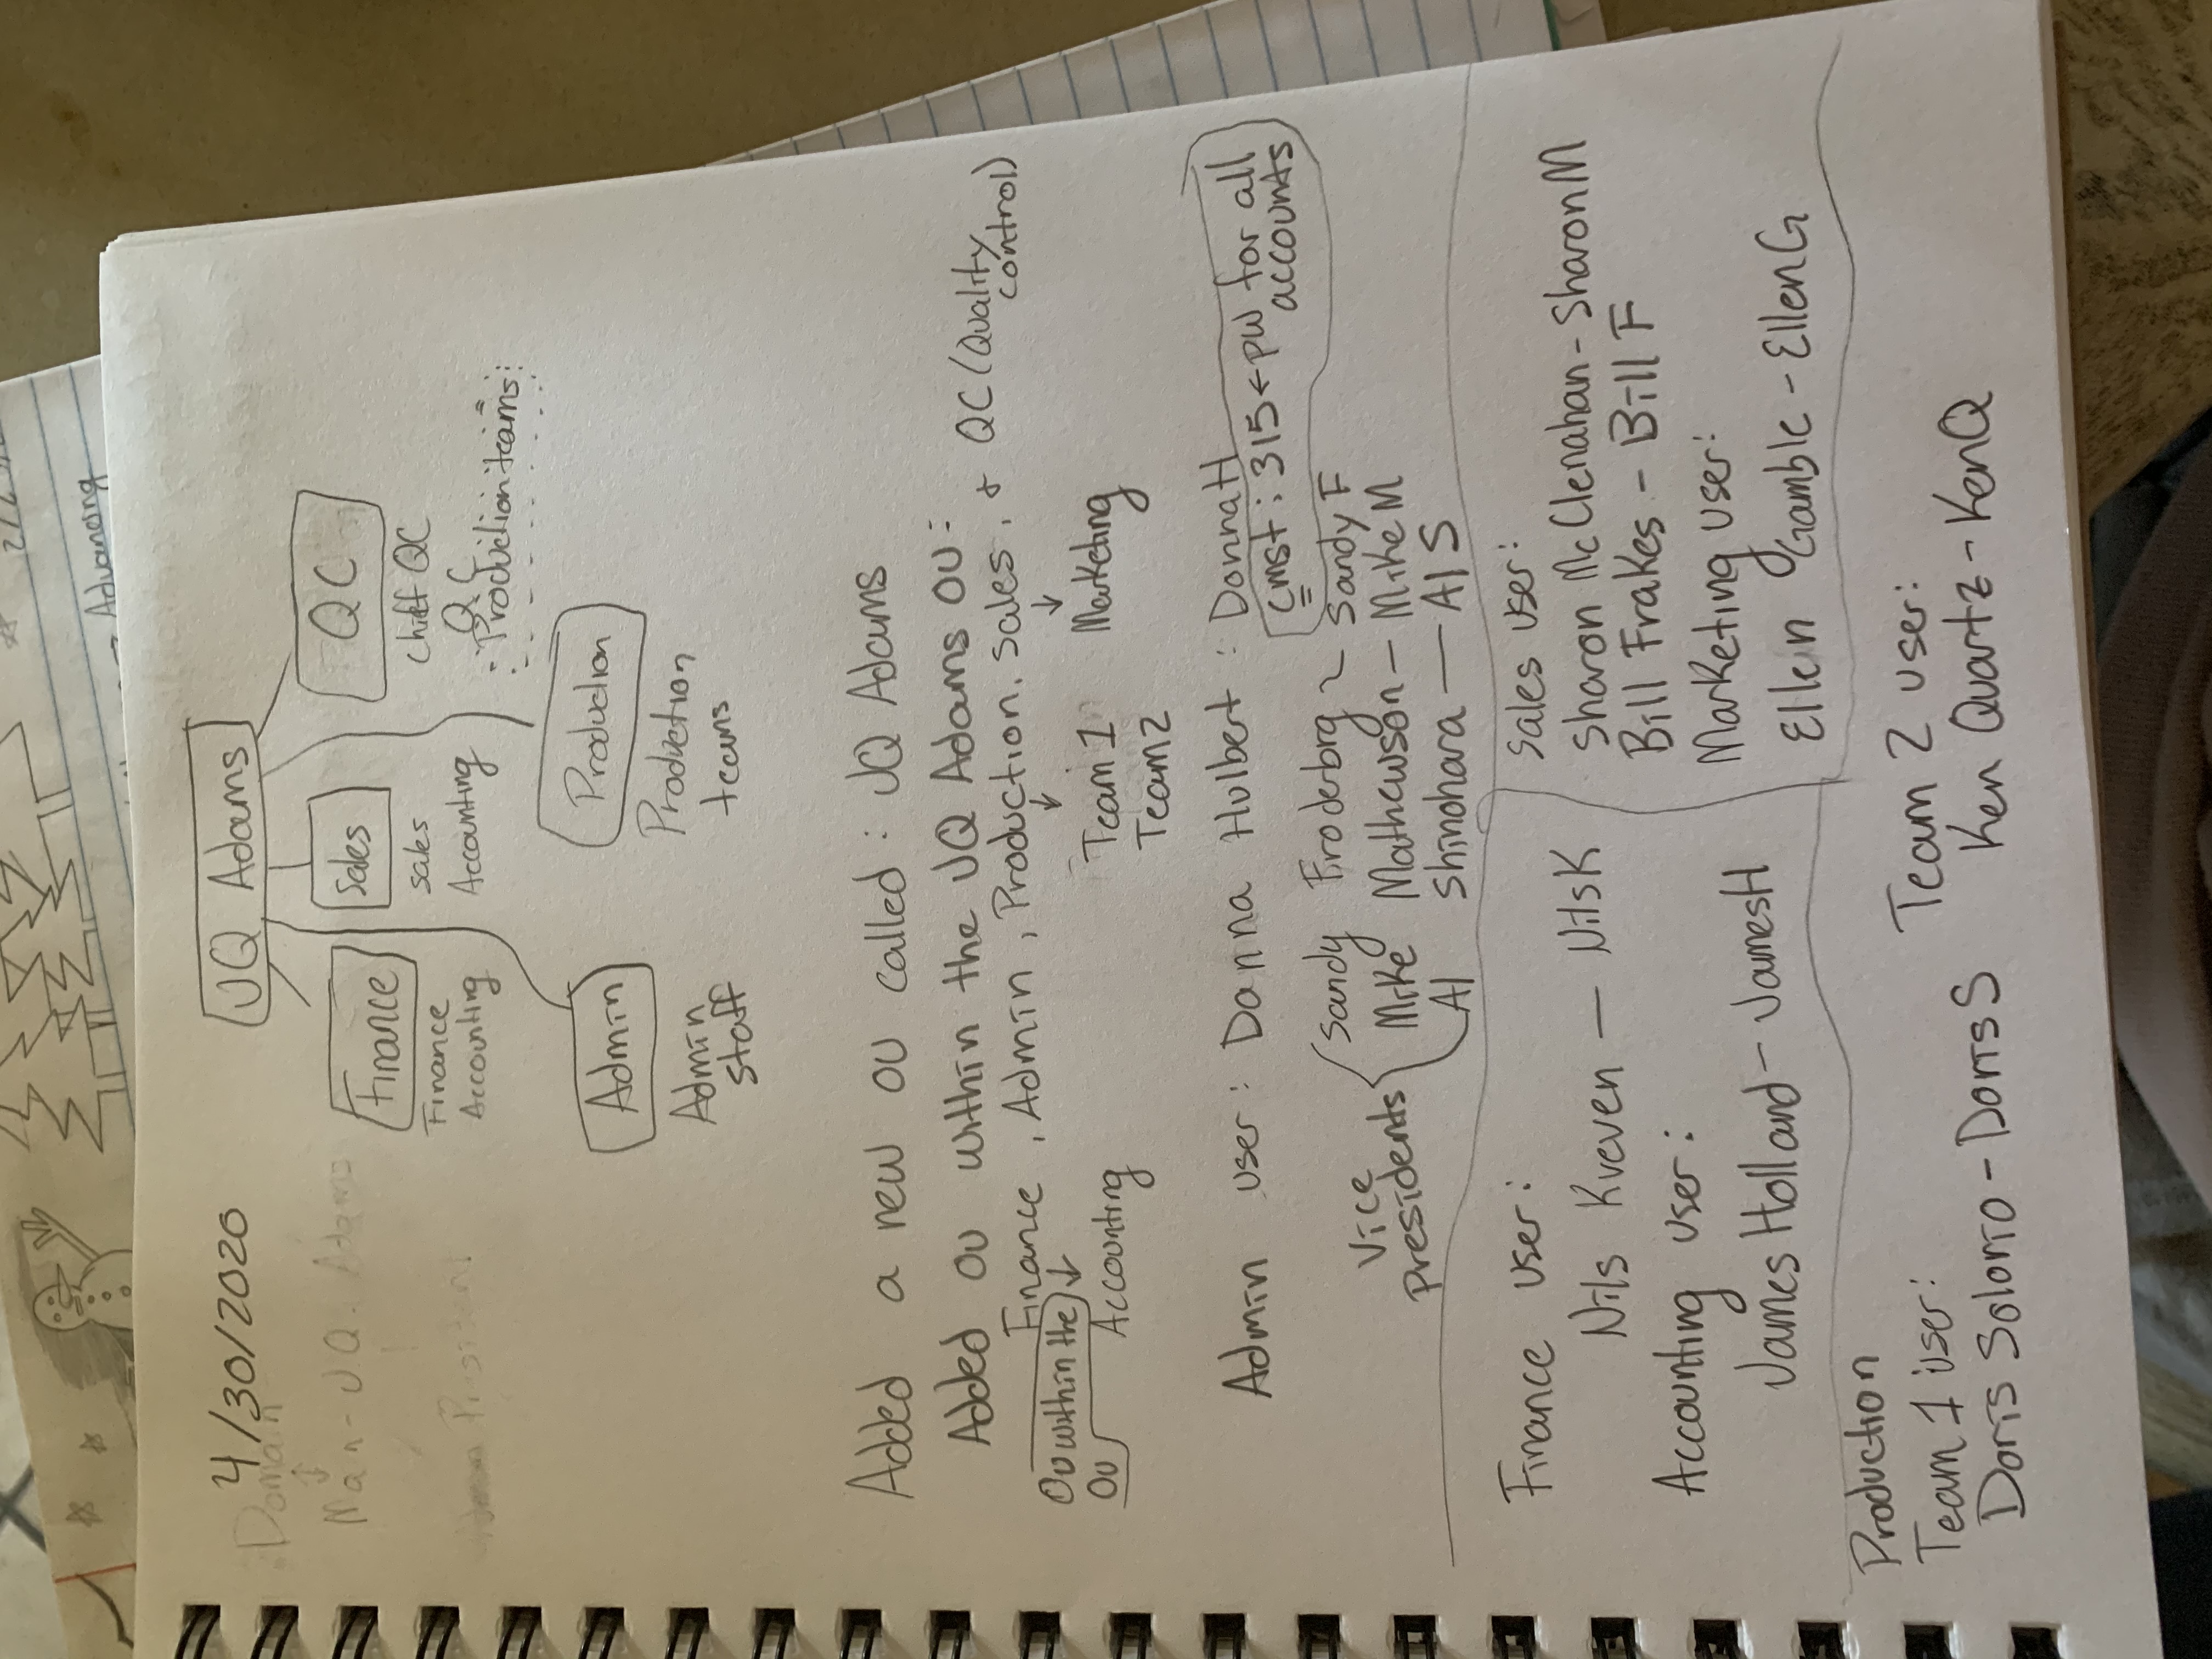 Advancing
4/30/2020
JQ Adams
Domain
Man - J.Q. Adams
Finance
Sales
QC
Finance
Accounting
Sales
Accounting
Chief QC
QC
Production teams
Admin
Production
Admin
staff
Production
teams
Added a new OU called: JQ Adams
Added OU within the JQ Adams OU:
Finance, Admin, Production, Sales, & QC (Quality
control)
OU within the
OU
Accounting
Team 1
Team 2
Marketing
Admin user: Donna Hulbert: DonnaH
cmst:315 ← pw for all
accounts
Vice
Presidents
Sandy Froderbrg ~ Sandy F
Mike Mathewson — Mike M
Al Shinohara — Al S
Finance user:
Nils Kveven — NilsK
Accounting user:
James Holland - JamesH
Sales user:
Sharon McClenahan - SharonM
Bill Frakes - Bill F
Marketing user:
Ellen Gamble - EllenG
Production
Team 1 user:
Doris Solorio - DorisS
Team 2 user:
Ken Quartz - KenQ